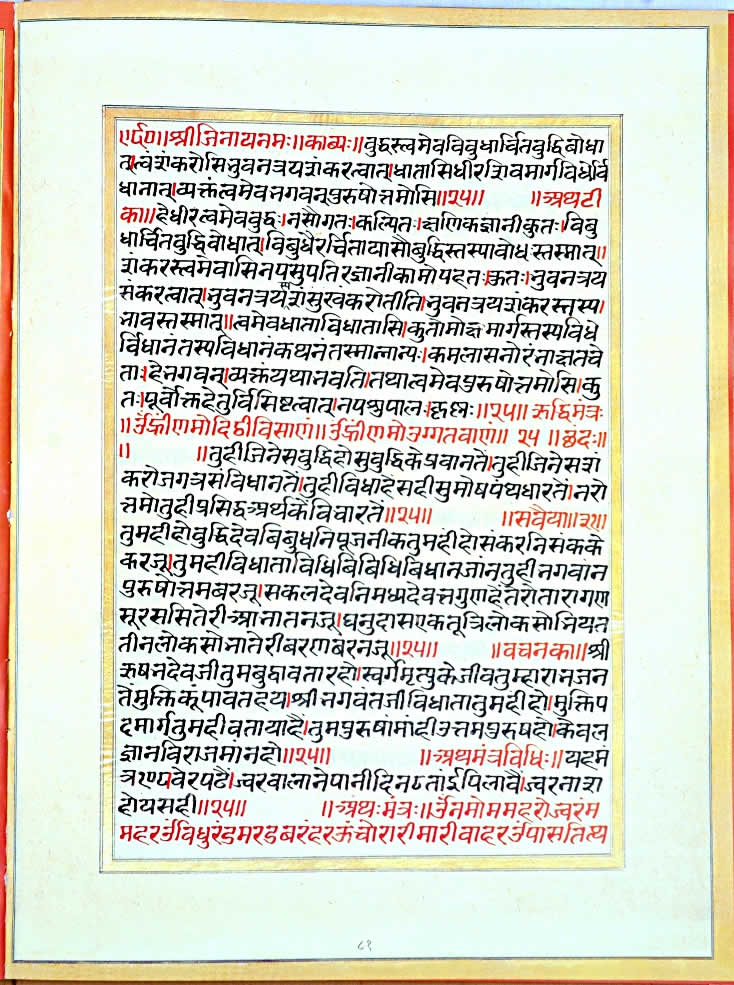 ॥र्द०॥श्रीजिनायनमः॥काव्यः॥बुद्धस्त्वमेवविबुधार्चितबुद्धिबोधा
त्॥त्वंशंकरोसिभुवनत्रयशंकरत्वात्॥धातासिधीरशिवमार्गविधेर्वि
धानात्॥व्यक्तंत्वमेवभगवन्पुरुषोत्तमोसि॥२५॥ ॥अथटी
का॥हेधीरत्वमेवबुद्धः।नसौगतःकल्पितः।क्षणिकज्ञानीकुतः।विबु
धार्चितबुद्धिबोधात्।विबुधैरर्चितायासौबुद्धिस्तस्याबोधस्तस्मात्॥
शंकरस्त्वमेवासिनपसुपतिरज्ञानीकामोपहतः।कुतः।भुवनत्रय
संकरत्वात्।भुवनत्रयेशंसुखंकरोतीति।भुवनत्रयशंकरस्तस्य।
भावस्तस्मात्॥त्वमेवधाताविधातासि।कुतोमोक्षमार्गस्तस्यविधे
र्विधानंतस्यविधानंकथनंतस्मान्नान्यः।कमलासनोरंभाक्षतवे
ताः।हेभगवन्।व्यक्तंयथाभवति।तथात्वमेवपुरुषोत्तमोसि।कु
तः।पूर्वोक्तहेतुर्विसिष्टत्वात्।नपशुपालःकृष्णः॥२५॥ ऋद्धिमंत्रः
॥उँह्रींणमोदिठीविसाणं॥उँह्रींणमोउग्गतवाणं॥ २५ ॥छंदः॥
॥ ॥तुहीजिनेसबुद्धिहोसुबुद्धिकेप्रवानतें।तुहीजिनेसशं
करोजगत्रसंविधानतें।तुहीविधाहैसहीसुमोषपंथधारतें।नरो
त्तमोतुहीप्रसिद्धअर्थकेंविचारतें॥२५॥ ॥सवैया॥३१॥
तुमहीहोबुद्धिदेवबिबुधनिपूजनीकतुमहीहोसंकरनिसंकके
करजू।तुमहीविधाताविधिबिबिधिबिधानजांनतुहीभगवान
पुरुषोत्तमबरजू।सकलदेवनिमध्यदेवत्तगुणहैतेरोतारागण
सूरससितेरीआभातनजू।घनुदासएकतूत्रिलोकसोभियत
तीनलोकसोभातेरीबरणबरनजू॥२५॥ ॥वचनका॥श्री
ऋषभदेवजीतुमबुद्धावतारहो।स्वर्गमृत्युकेजीवतुम्हाराभजन
तेंमुक्तिकूंपावतहय।श्रीभगवंतजीविधातातुमहीहो।मुक्तिप
दमार्गतुमहीवतायाहै।तुमपुरुषांमांहीउत्तमपुरुषहो।कैवल
ज्ञानविराजमांनहो॥२५॥ ॥अथमंत्रविधिः॥यहमं
त्र१०८वेरपढै।ज्वरवालानेपानीदिन८तांईपिलावै।ज्वरनाश
होयसही॥२५॥ ॥अथःमंत्रः॥उँनमोममहरोज्वरंम